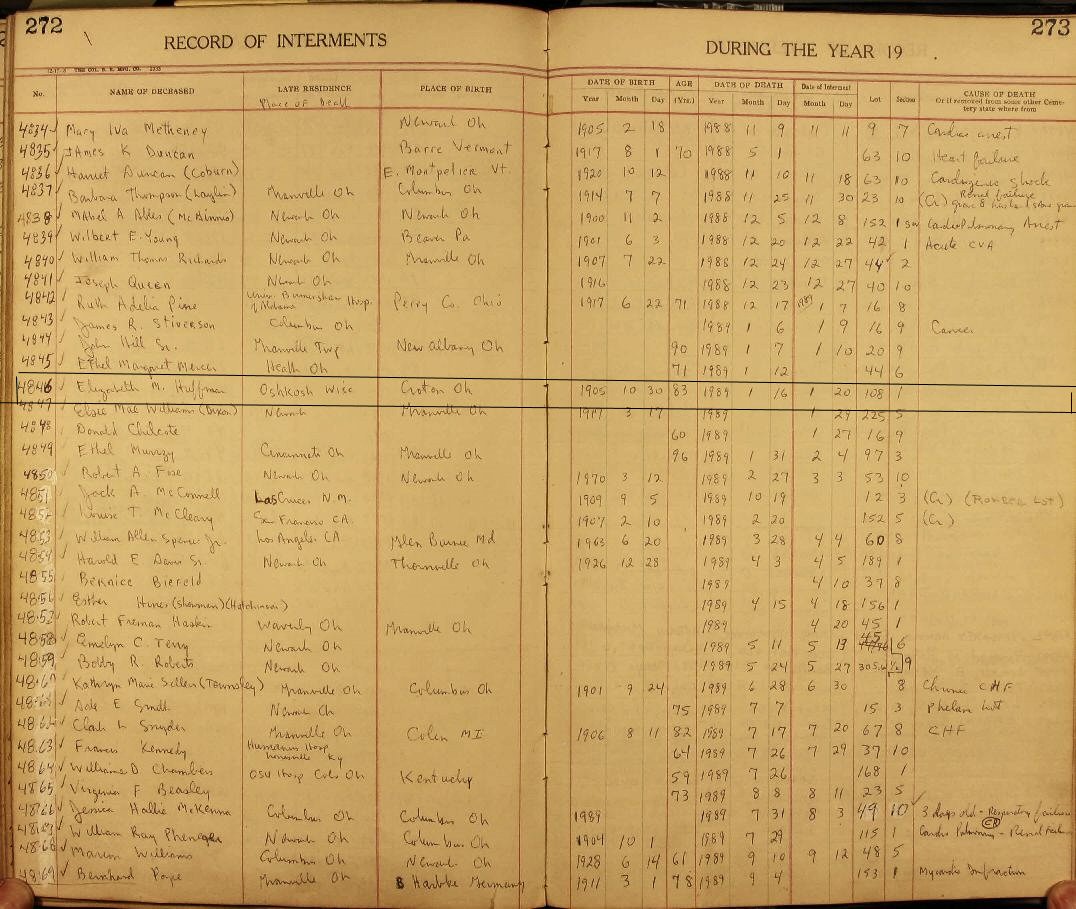 272
RECORD OF INTERMENTS
DURING THE YEAR 19 .
273
No. NAME OF DECEASED LATE RESIDENCE PLACE OF BIRTH DATE OF BIRTH AGE DATE OF DEATH Date of Interment Lot Section CAUSE OF DEATH
Place of Death Year Month Day (Yrs.) Year Month Day Month Day Or if removed from some other Ceme-
tery state where from
4834 Mary Iva Metheney Newark Oh 1905 2 18 1988 11 9 11 11 9 7 Cardiac arrest
4835 James K Duncan Barre Vermont 1917 8 1 70 1988 5 1 63 10 Heart failure
4836 Harriet Duncan (Coburn) E. Montpelier Vt. 1920 10 12 1988 11 10 11 18 63 10 Cardiogenic Shock
4837 Barbara Thompson (Laylin) Granville Oh Columbus Oh 1914 7 7 1988 11 25 11 30 23 10 (Cr) Renal failure
4838 Mabel A Alder (McKinnis) Newark Oh Newark Oh 1900 11 2 1988 12 5 12 8 152 1 SW Cardio Pulmonary Arrest
4839 Wilbert E. Young Newark Oh Beaver Pa 1901 6 3 1988 12 20 12 22 42 1 Acute CVA
4840 William Thomas Richards Newark Oh Granville Oh 1907 7 22 1988 12 24 12 27 44 2
4841 Joseph Queen Newark Oh 1916 1988 12 23 12 27 40 10
4842 Ruth Adelia Pine Univ. Birmingham Hosp. of Alabama Perry Co. Ohio 1917 6 22 71 1988 12 17 1989 1 7 16 8
4843 James R. Stiverson Columbus Oh 1989 1 6 1 9 16 9 Cancer
4844 John Hill Sr. Granville Twp New Albany Oh 90 1989 1 7 1 10 20 9
4845 Ethel Margaret Merch Heath Oh 71 1989 1 12 44 6
4846 Elizabeth M. Huffman Oshkosh Wisc Croton Oh 1905 10 30 83 1989 1 16 1 20 108 1
4847 Elsie Mae Williams (Dixon) Newark Granville Oh 1917 3 17 1989 1 29 225 5
4848 Donald Chilcote 60 1989 1 27 16 9
4849 Ethel Murray Cincinnati Oh Granville Oh 96 1989 1 31 2 4 97 3
4850 Robert A. Newark Oh Newark Oh 1970 3 12 1989 2 27 3 3 53 10
4851 Jack A. McConnell Las Cruces N.M. 1909 9 5 1989 10 19 12 3 (Cr)
4852 Louise T. McCleary San Francisco CA. 1907 2 10 1989 2 20 152 5 (Cr)
4853 William Allen Spencer Jr. Los Angeles CA Glen Burnie Md 1963 6 20 1989 3 28 4 4 60 8
4854 Harold E Davis Sr. Newark Oh Thornville Oh 1926 12 28 1989 4 3 4 5 189 1
4855 Bernice Biereld 1989 4 10 37 8
4856 Esther Hines (Showman) (Hutchinson) 1989 4 15 4 18 156 1
4857 Robert Freman Haskin Waverly Oh Granville Oh 1989 4 20 45 1
4858 Emelyn C. Terry Newark Oh 1989 5 11 5 13 45 6
4859 Bobby R. Roberts Newark Oh 1989 5 24 5 27 305 9
4860 Kathryn Marie Sellers (Townsley) Granville Oh Columbus Oh 1901 9 24 1989 6 28 6 30 8 Chronic CHF
4861 Dale E Smith Newark Oh 75 1989 7 7 15 3 Phelan Lot
4862 Clark L Snyder Granville Oh Colen MI 1906 8 11 82 1989 7 17 7 20 67 8 CHF
4863 Francis Kennedy Humanas Hosp Louisville Ky 64 1989 7 26 7 29 37 10
4864 Williams D Chambers OSU Hosp Cols Oh Kentucky 59 1989 7 26 168 1
4865 Virginia F Beasley 73 1989 8 8 8 11 23 5
4866 Jessica Hallie McKenna Columbus Oh Columbus Oh 1989 1989 7 31 8 3 49 10 3 days old - Respiratory failure
4867 William Ray Phenegar Newark Oh Columbus Oh 1904 10 1 1989 7 29 115 1 Cardio Pulmonary (CR) - Renal Failure
4868 Marion Williams Columbus Oh Newark Oh 1928 6 14 61 1989 9 10 9 12 48 5
4869 Bernhard Pope Granville Oh Harbke Germany 1911 3 1 78 1989 9 4 153 1 Myocardio Infraction